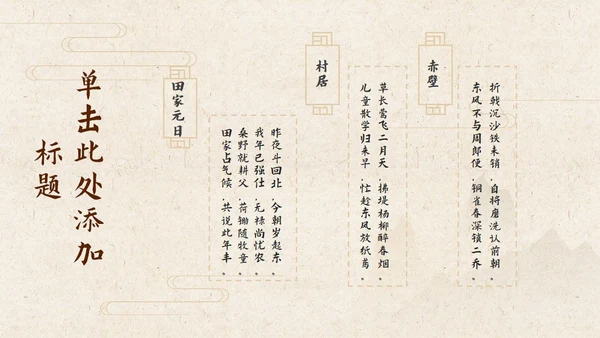 单击此处添加
标题
赤壁
折戟沉沙铁未销，自将磨洗认前朝。
东风不与周郎便，铜雀春深锁二乔。
村居
草长莺飞二月天，拂堤杨柳醉春烟。
儿童散学归来早，忙趁东风放纸鸢。
田家元日
昨夜斗回北，今朝岁起东。
我年已强仕，无禄尚忧农。
桑野就耕父，荷锄随牧童。
田家占气候，共说此年丰。